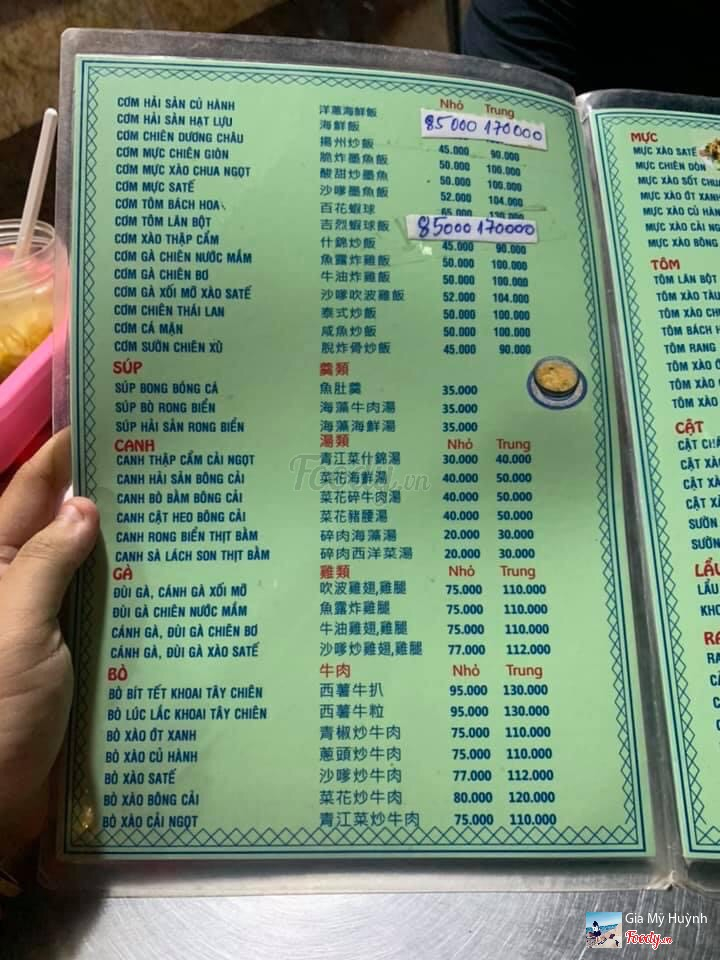 Nhỏ Trung
CƠM HẢI SẢN CỦ HÀNH 洋蔥海鮮飯
85000 170000
CƠM HẢI SẢN HẠT LỰU 海鮮飯
CƠM CHIÊN DƯƠNG CHÂU 揚州炒飯 45.000 90.000
CƠM MỰC CHIÊN GIÒN 脆炸墨魚飯 50.000 100.000
CƠM MỰC XÀO CHUA NGỌT 酸甜炒墨魚 50.000 100.000
CƠM MỰC SATẾ 沙嗲墨魚飯 52.000 104.000
CƠM TÔM BÁCH HOA 百花蝦球 65.000 130.000
CƠM TÔM LĂN BỘT 吉烈蝦球飯 85000 170000
CƠM XÀO THẬP CẨM 什錦炒飯 45.000 90.000
CƠM GÀ CHIÊN NƯỚC MẮM 魚露炸雞飯 50.000 100.000
CƠM GÀ CHIÊN BƠ 牛油炸雞飯 50.000 100.000
CƠM GÀ XỐI MỠ XÀO SATẾ 沙嗲吹波雞飯 52.000 104.000
CƠM CHIÊN THÁI LAN 泰式炒飯 50.000 100.000
CƠM CÁ MẶN 咸魚炒飯 50.000 100.000
CƠM SƯỜN CHIÊN XÙ 脫炸骨炒飯 45.000 90.000
SÚP 羹類
SÚP BONG BÓNG CÁ 魚肚羹 35.000
SÚP BÒ RONG BIỂN 海藻牛肉湯 35.000
SÚP HẢI SẢN RONG BIỂN 海藻海鮮湯 35.000
CANH 湯類 Nhỏ Trung
CANH THẬP CẨM CẢI NGỌT 青江菜什錦湯 30.000 40.000
CANH HẢI SẢN BÔNG CẢI 菜花海鮮湯 40.000 50.000
CANH BÒ BẰM BÔNG CẢI 菜花碎牛肉湯 40.000 50.000
CANH CẬT HEO BÔNG CẢI 菜花豬腰湯 40.000 50.000
CANH RONG BIỂN THỊT BẰM 碎肉海藻湯 20.000 30.000
CANH SÀ LÁCH SON THỊT BẰM 碎肉西洋菜湯 20.000 30.000
GÀ 雞類 Nhỏ Trung
ĐÙI GÀ, CÁNH GÀ XỐI MỠ 吹波雞翅,雞腿 75.000 110.000
ĐÙI GÀ CHIÊN NƯỚC MẮM 魚露炸雞腿 75.000 110.000
CÁNH GÀ, ĐÙI GÀ CHIÊN BƠ 牛油雞翅,雞腿 75.000 110.000
CÁNH GÀ, ĐÙI GÀ XÀO SATẾ 沙嗲炒雞翅,雞腿 77.000 112.000
BÒ 牛肉 Nhỏ Trung
BÒ BÍT TẾT KHOAI TÂY CHIÊN 西薯牛扒 95.000 130.000
BÒ LÚC LẮC KHOAI TÂY CHIÊN 西薯牛粒 95.000 130.000
BÒ XÀO ỚT XANH 青椒炒牛肉 75.000 110.000
BÒ XÀO CỦ HÀNH 蔥頭炒牛肉 75.000 110.000
BÒ XÀO SATẾ 沙嗲炒牛肉 77.000 112.000
BÒ XÀO BÔNG CẢI 菜花炒牛肉 80.000 120.000
BÒ XÀO CẢI NGỌT 青江菜炒牛肉 75.000 110.000
MỰC
MỰC XÀO SATẾ
MỰC CHIÊN DÒN
MỰC XÀO SỐT CHU
MỰC XÀO ỚT XANH
MỰC XÀO CỦ HÀNH
MỰC XÀO CẢI NG
MỰC XÀO BÔNG
TÔM
TÔM LĂN BỘT
TÔM XÀO TÀU
TÔM XÀO CH
TÔM BÁCH H
TÔM RANG
TÔM XÀO Ố
TÔM XÀO
TÔM XÀO
CẬT
CẬT CH
CẬT XÀ
CẬT X
CẬT X
SƯỜN
SƯỜN
LẨU
LẨU
KHO
RA
Foody.vn
Gia Mỹ Huỳnh
Foody.vn